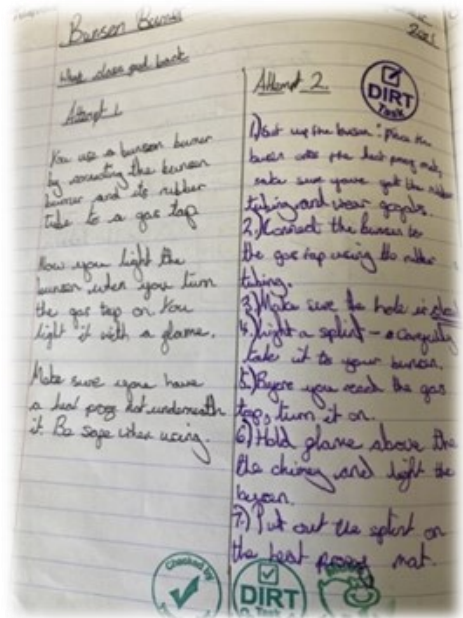 Bunsen Burner
2021
What does good look
Attempt 1
You use a bunsen burner
by connecting the bunsen
burner and its rubber
tube to a gas tap
How you light the
bunsen when you turn
the gas tap on You
light it with a flame.
Make sure you have
a heat proof underneath
it. Be safe when using.
Checked by
Attempt 2
DIRT
Task
1) Set up the bunsen. Place the
bunsen onto the heat proof mat,
make sure youve got the rubber
tubing and wear goggles.
2.) Connect the bunsen to
the gas tap using the rubber
tubing.
3) Make sure the hole is
4.) Light a splint - carefully
take it to your bunsen.
5.) Before you reach the gas
tap, turn it on.
6) Hold flame above the
the chimey and light the
bunsen.
7.) Put out the splint on
the heat proof mat.
DIRT
Task